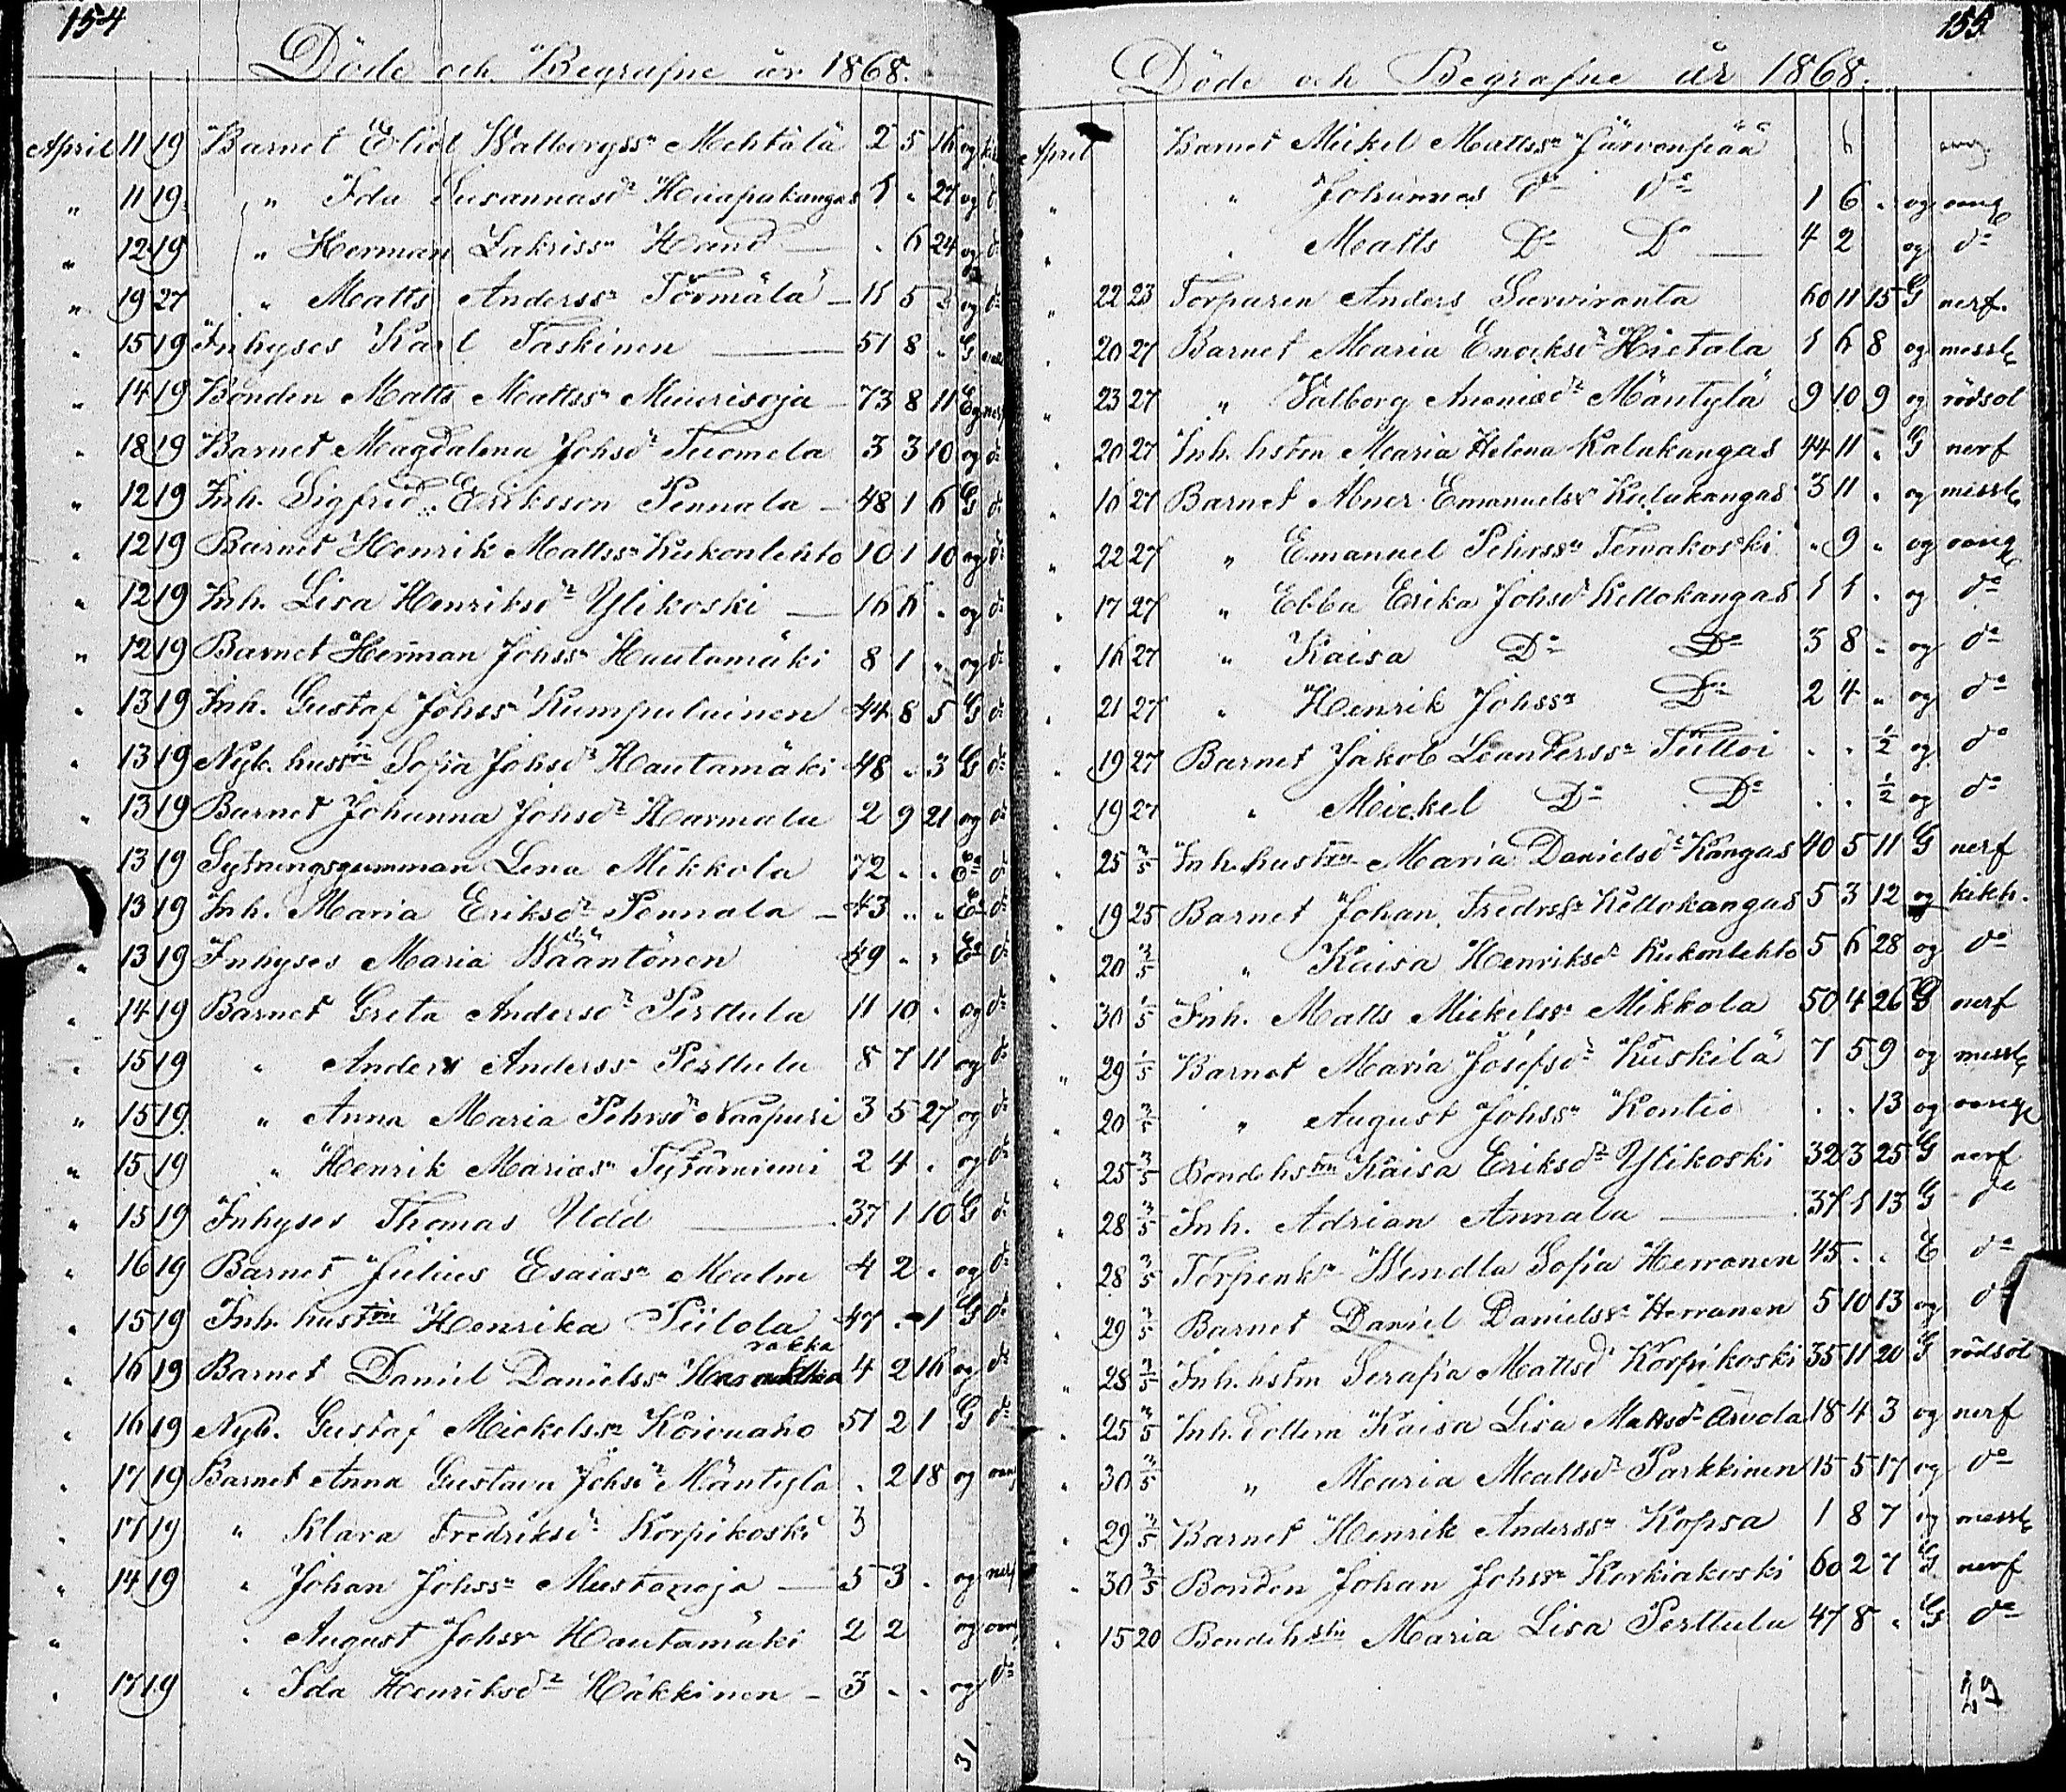 154
Döde och Begrafne år 1868.
April 11 19 Barnet Eliel Walborgssn Mehtälä 2 5 16 og
" 11 19 " Ida Susannasdr Haapakangas 1 " 27 og do
" 12 19 " Herman Zakrissn Hand — . 6 24 og do
" 19 27 " Matts Anderssn Törmälä — 11 5 " og do
" 15 19 Inhyses Karl Taskinen — 51 8 " G
" 14 19 Bonden Matts Mattssn Muurisoja — 73 8 11 Eg nerf
" 18 19 Barnet Magdalena Johsdr Tuomela 3 3 10 og do
" 12 19 Inh. Sigfrid Eriksson Pennala — 48 1 6 G do
" 12 19 Barnet Henrik Mattssn Kukonlehto 10 1 10 og do
" 12 19 Inh. Lisa Henriksdr Ylikoski — 16 6 " og do
" 12 19 Barnet Herman Johssn Hautamäki 8 1 " og do
" 13 19 Inh. Gustaf Johss Kumpulainen 44 8 5 G do
" 13 19 Nyb. hustrn Sofia Johsdr Hautamäki 48 . 3 G do
" 13 19 Barnet Johanna Johsdr Harmala 2 9 21 og do
" 13 19 Sytningsgumman Lena Mikkola 72 . . Ea do
" 13 19 Inh. Maria Eriksdr Pennala — 43 . . Ea do
" 13 19 Inhyses Maria Wääntönen 49 . . Ea do
" 14 19 Barnet Greta Andersdr Perttula 11 10 . og do
" 15 19 " Anders Anderss Perttula 8 7 11 og do
" 15 19 " Anna Maria Pehrsdr Naapuri 3 5 27 og do
" 15 19 " Henrik Mariasn Tytärniemi 2 4 . og do
" 15 19 Inhyses Thomas Udd — 37 1 10 G do
" 16 19 Barnet Julius Esaiasn Malm 4 2 . og do
" 15 19 Inh. hustrn Henrika Piilola 47 . 1 G do
rakka
" 16 19 Barnet Daniel Danielssn 4 2 16 og do
" 16 19 Nyb. Gustaf Mickelssn Koivuaho 51 2 1 G do
" 17 19 Barnet Anna Gustava Johsdr Mäntylä . 2 18 og oang
" 17 19 " Klara Fredriksdr Korpikoski 3
" 14 19 " Johan Johssn Mustanoja — 5 3 . og nerf
" " August Johss Hautamäki 2 2 og oang
" 17 19 " Ida Henriksdr Häkkinen — 3 . . og do
31
155
Döde och Begrafne år 1868.
April Barnet Mickel Mattssn Järvenpää 6 oang
" " Johannes do do 1 6 . og oang
" " Matts Do Do — 4 2 og do
" 22 23 Torparen Anders Sarviranta 60 11 15 G nerf.
" 20 27 Barnet Maria Enoksdr Hietala 1 6 8 og messl
" 23 27 " Valborg Ananiasdr Mäntylä 9 10 9 og rödsot
" 20 27 Inh. hstrn Maria Helena Kalakangas 44 11 . G nerf
" 16 27 Barnet Abner Emanuelss Kalakangas 3 11 . og messl
" 22 27 " Emanuel Pehrssn Ternakoski " 9 " og oang
" 17 27 " Ebba Erika Johsdr Kellokangas 1 1 . og do
" 16 27 " Kaisa Do Do 3 8 . og do
" 21 27 " Henrik Johssn Do 2 4 " og do
" 19 27 Barnet Jakob Leanderssn Tuttoi . . ½ og do
" 19 27 " Mickel Do Do . . ½ og do
" 25 3/5 Inh. hustrn Maria Danielsdr Kangas 40 5 11 G nerf
" 19 25 Barnet Johan Fredrss Kellokangas 5 3 12 og kikh.
" 20 3/5 " Kaisa Henriksdr Kukonlehto 5 6 28 og do
" 30 1/5 Inh. Matts Mickelss Mikkola 50 4 26 G nerf
" 29 1/5 Barnet Maria Josefsdr Kuskilä 7 5 9 og messl
" 20 3/5 " August Johssn Kontio . . 13 og oang
" 25 3/5 Bondehstrn Kaisa Eriksdr Ylikoski 32 3 25 G nerf
" 28 3/5 Inh. Adrian Annala — 37 1 13 G do
" 28 3/5 Torpenk. Wendla Sofia Herranen 45 . . E do
" 29 3/5 Barnet Daniel Danielss Herranen 5 10 13 og do
" 28 3/5 Inh. hstrn Serafia Mattsd Korpikoski 35 11 20 G rödsot
" 25 3/5 Inh. dottern Kaisa Lisa Mattsdr Arvola 18 4 3 og nerf
" 30 3/5 " Maria Mattsdr Parkkinen 15 5 17 og do
" 29 3/5 Barnet Henrik Anderssn Kopsa 1 8 7 og messl
" 30 3/5 Bonden Johan Johssn Korkiakoski 60 2 7 G nerf
" 15 20 Bondehstn Maria Lisa Perttula 47 8 . G do
29